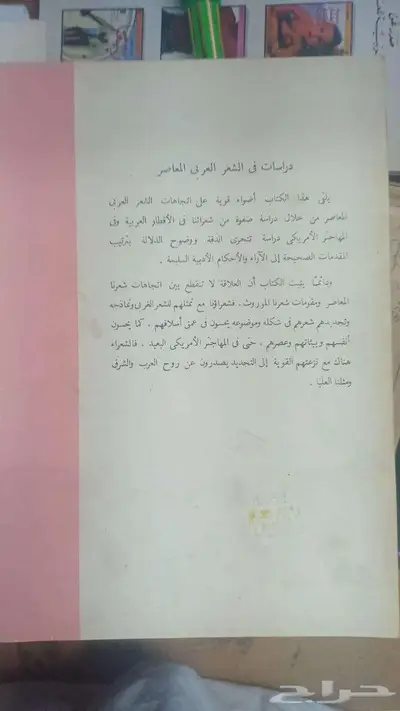 دراسات فى الشعر العربى المعاصر
يلقى هذا الكتاب أضواء قوية على اتجاهات الشعر العربى
المعاصر من خلال دراسة صفوة من شعرائنا فى الأقطار العربية وفى
المهاجر الأمريكى دراسة تتحرى الدقة ووضوح الدلالة بترتيب
المقدمات الصحيحة إلى الآراء والأحكام الأدبية السليمة .
ودائمًا يثبت الكتاب أن العلاقة لا تنقطع بين اتجاهات شعرنا
المعاصر ومقومات شعرنا الموروث. فشعراؤنا مع تمثلهم للشعر الغربى ونماذجه
وتجديدهم شعرهم فى شكله وموضوعه يحسون فى عمق أسلافهم ، كما يحسون
أنفسهم وبيئاتهم وعصرهم ، حتى فى المهاجر الأمريكى البعيد . فالشعراء
هناك مع نزعتهم القوية إلى التجديد يصدرون عن روح العرب والشرق
ومثلنا العليا .
حراج